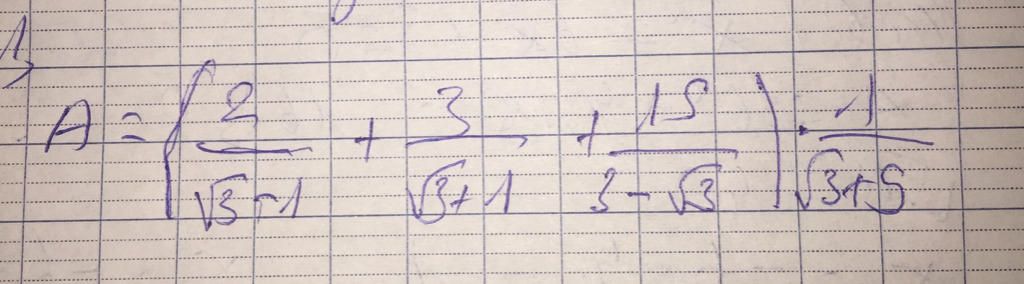 1)
A = (2/(√3-1) + 3/(√3+1) + 15/(3-√3)) . 1/(√3+5)